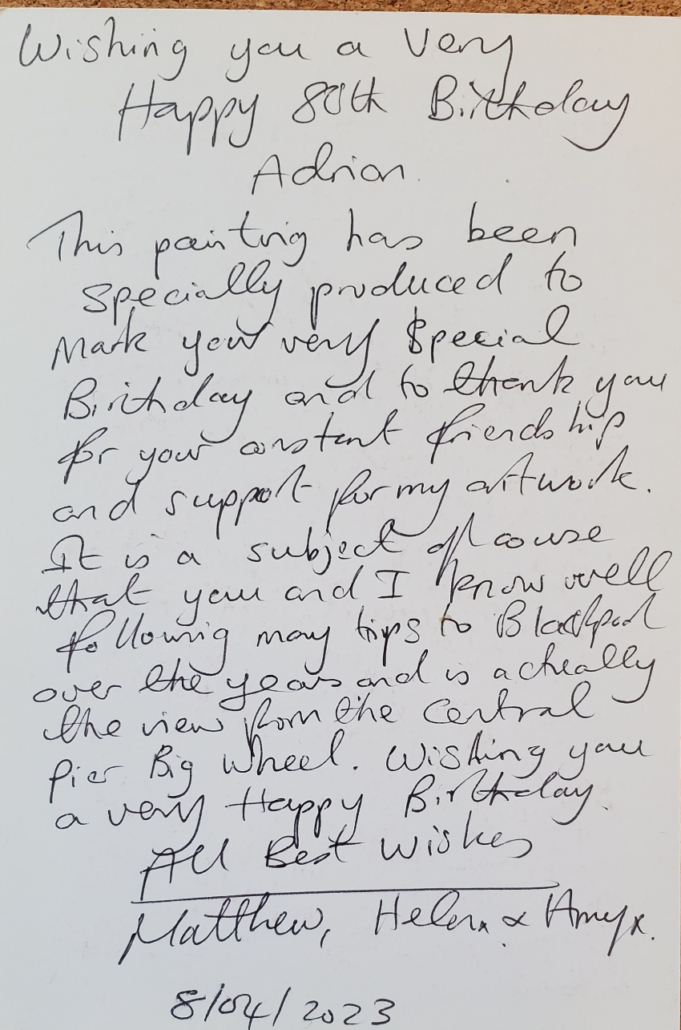 Wishing you a Very
Happy 80th Birthday
Adrian.
This painting has been
specially produced to
Mark your very special
Birthday and to thank you
for your constant friendship
and support for my artwork.
It is a subject of course
that you and I know well
following may trips to Blackpool
over the years and is actually
the view from the Central
Pier Big Wheel. Wishing you
a very Happy Birthday.
All Best Wishes
Matthew, Helen x & Amy x.
8/04/2023